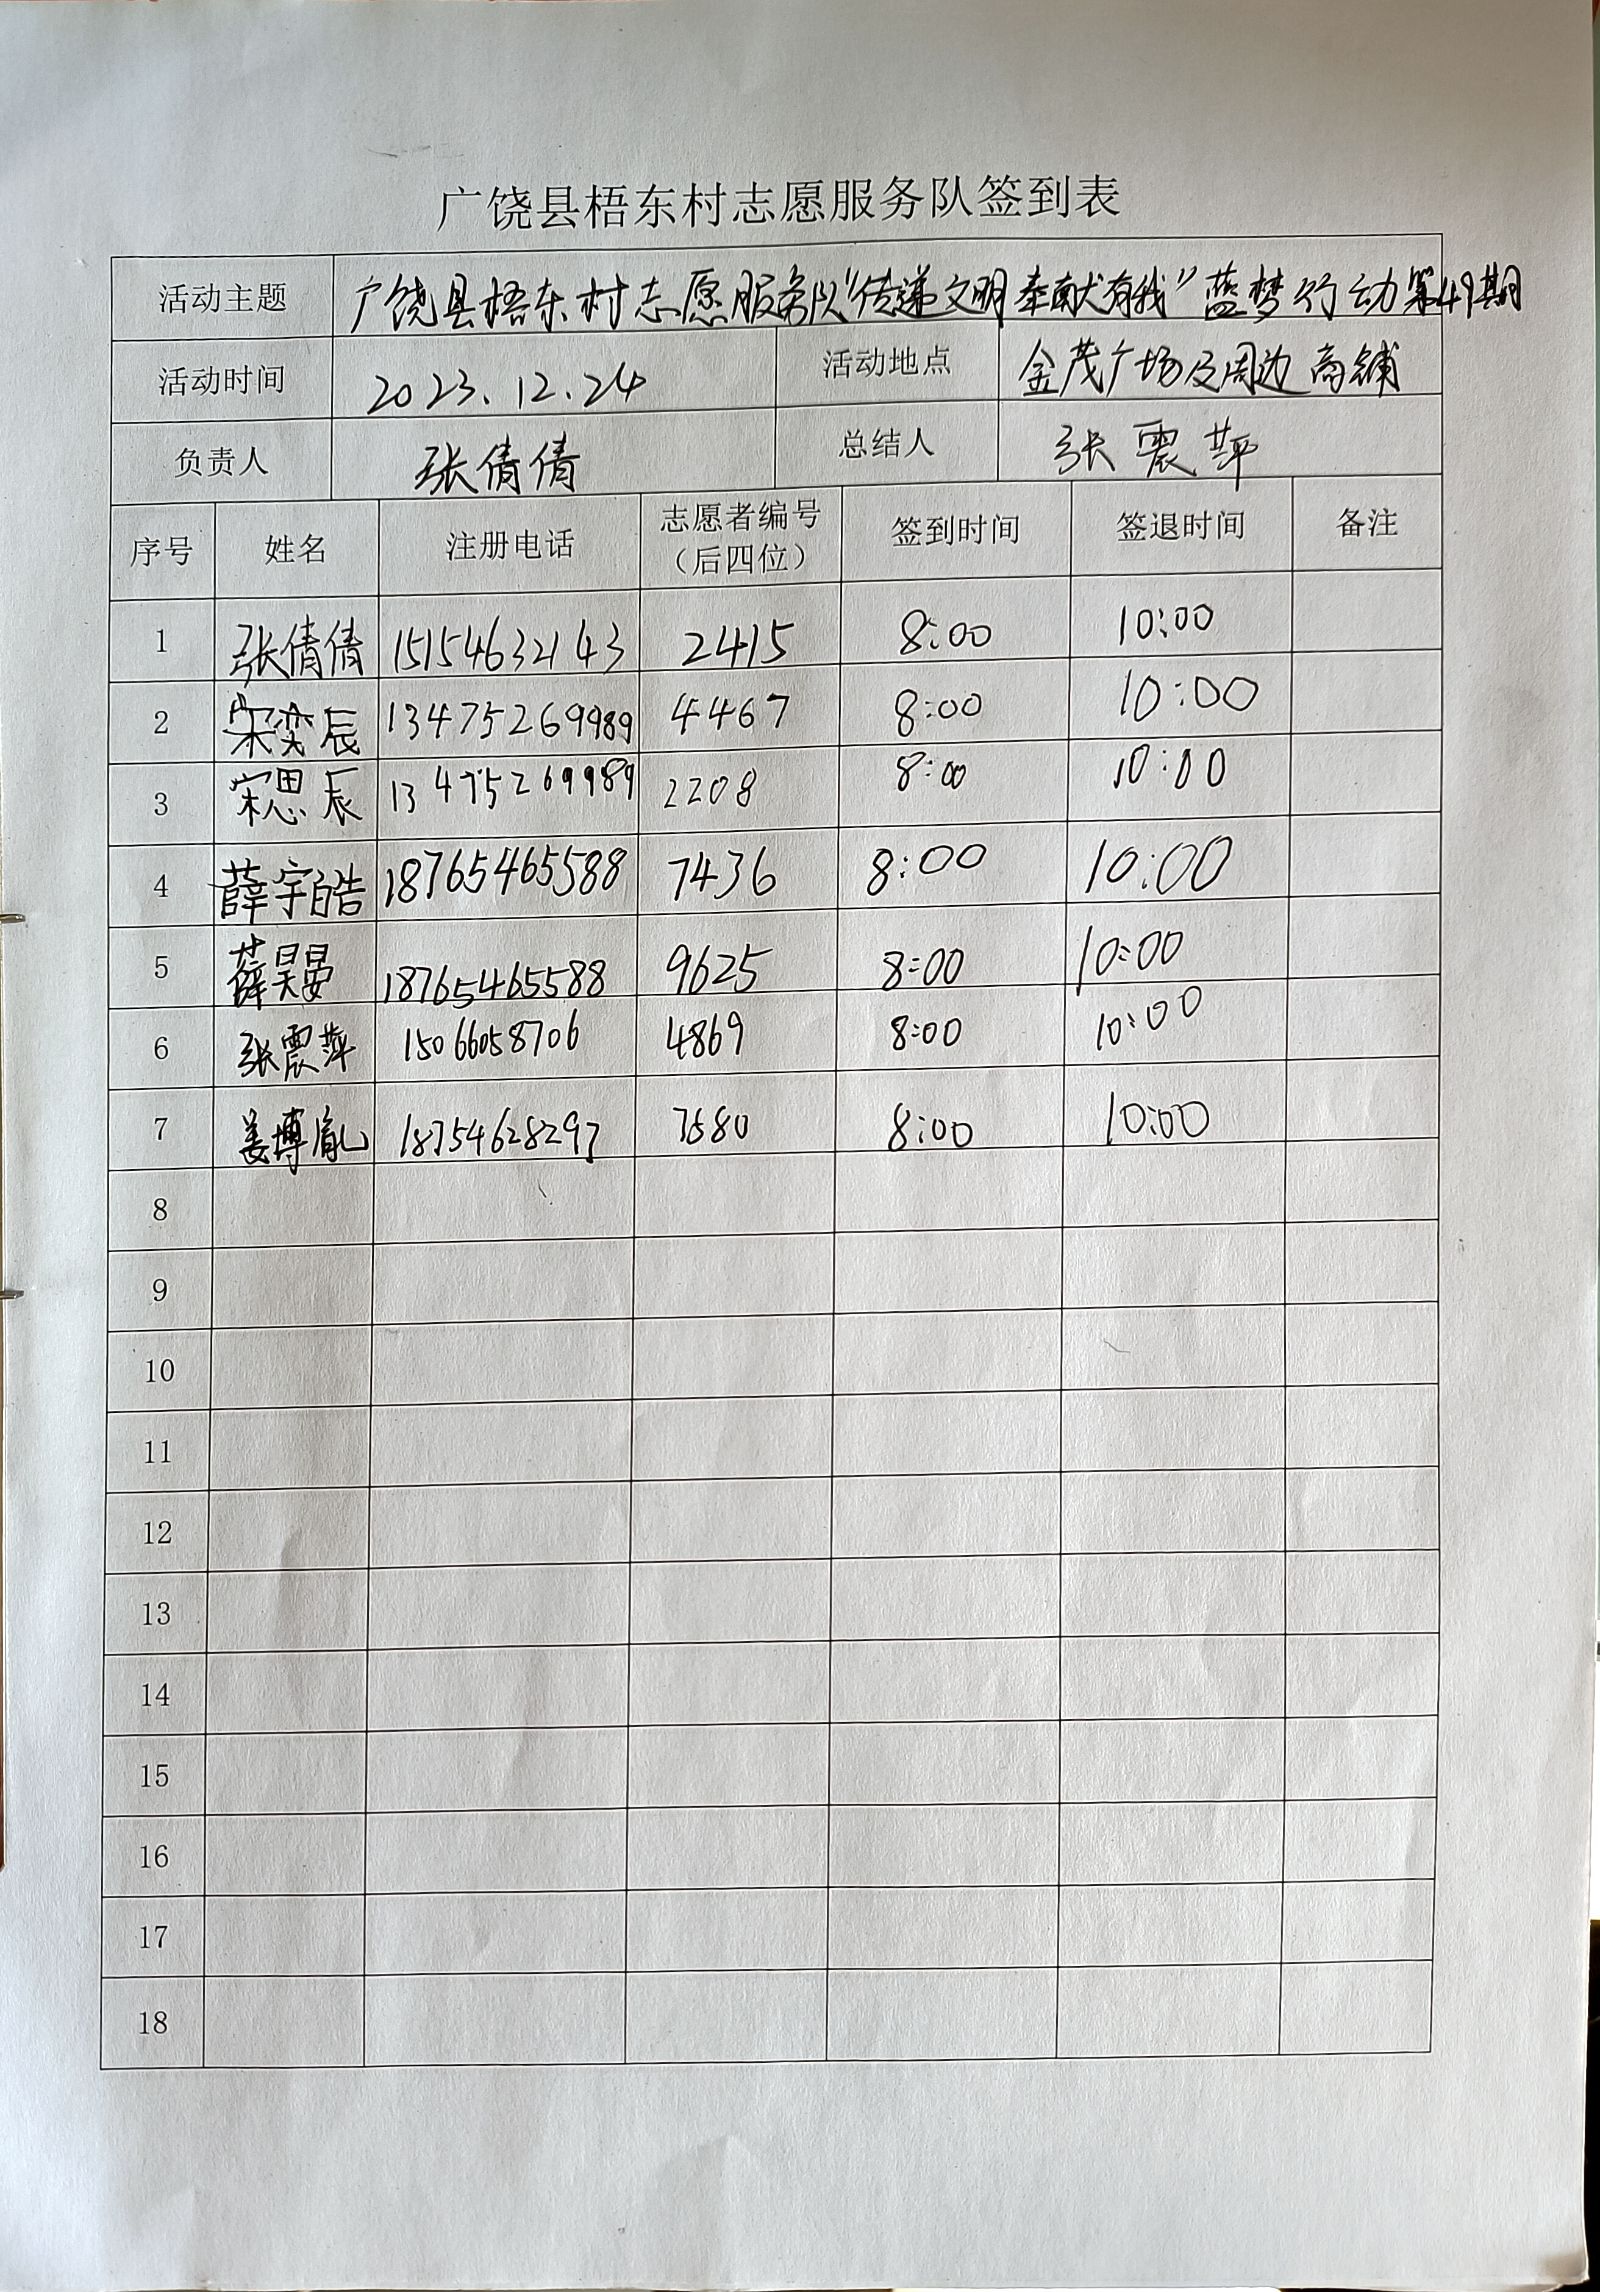 广饶县梧东村志愿服务队签到表
活动主题 广饶县梧东村志愿服务队“传递文明奉献有我”蓝梦行动第49期
活动时间 2023.12.24 活动地点 金茂广场及周边商铺
负责人 张倩倩 总结人 张震萍
序号 姓名 注册电话 志愿者编号（后四位） 签到时间 签退时间 备注
1 张倩倩 15154632143 2415 8:00 10:00
2 宋奕辰 13475269989 4467 8:00 10:00
3 宋思辰 13475269989 2208 8:00 10:00
4 薛宇皓 18765465588 7436 8:00 10:00
5 薛昊晏 18765465588 9625 8:00 10:00
6 张震萍 15066058706 4869 8:00 10:00
7 姜博胤 18754628297 7680 8:00 10:00
8
9
10
11
12
13
14
15
16
17
18